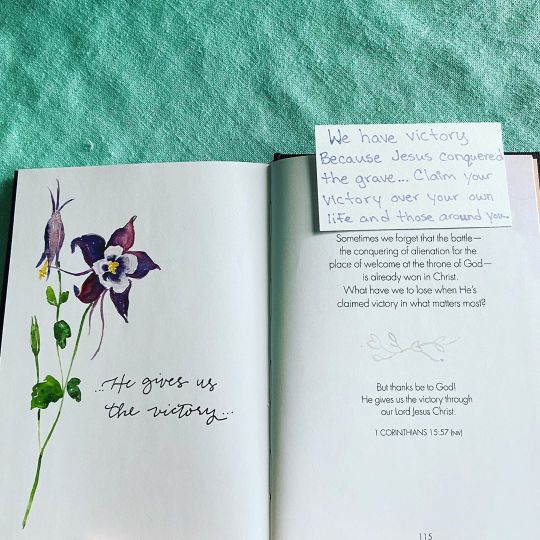 ...He gives us
the victory...
We have victory
Because Jesus conquered
the grave... Claim your
victory over your own
life and those around you.
Sometimes we forget that the battle—
the conquering of alienation for the
place of welcome at the throne of God—
is already won in Christ.
What have we to lose when He's
claimed victory in what matters most?
But thanks be to God!
He gives us the victory through
our Lord Jesus Christ.
1 CORINTHIANS 15:57 (NIV)
115